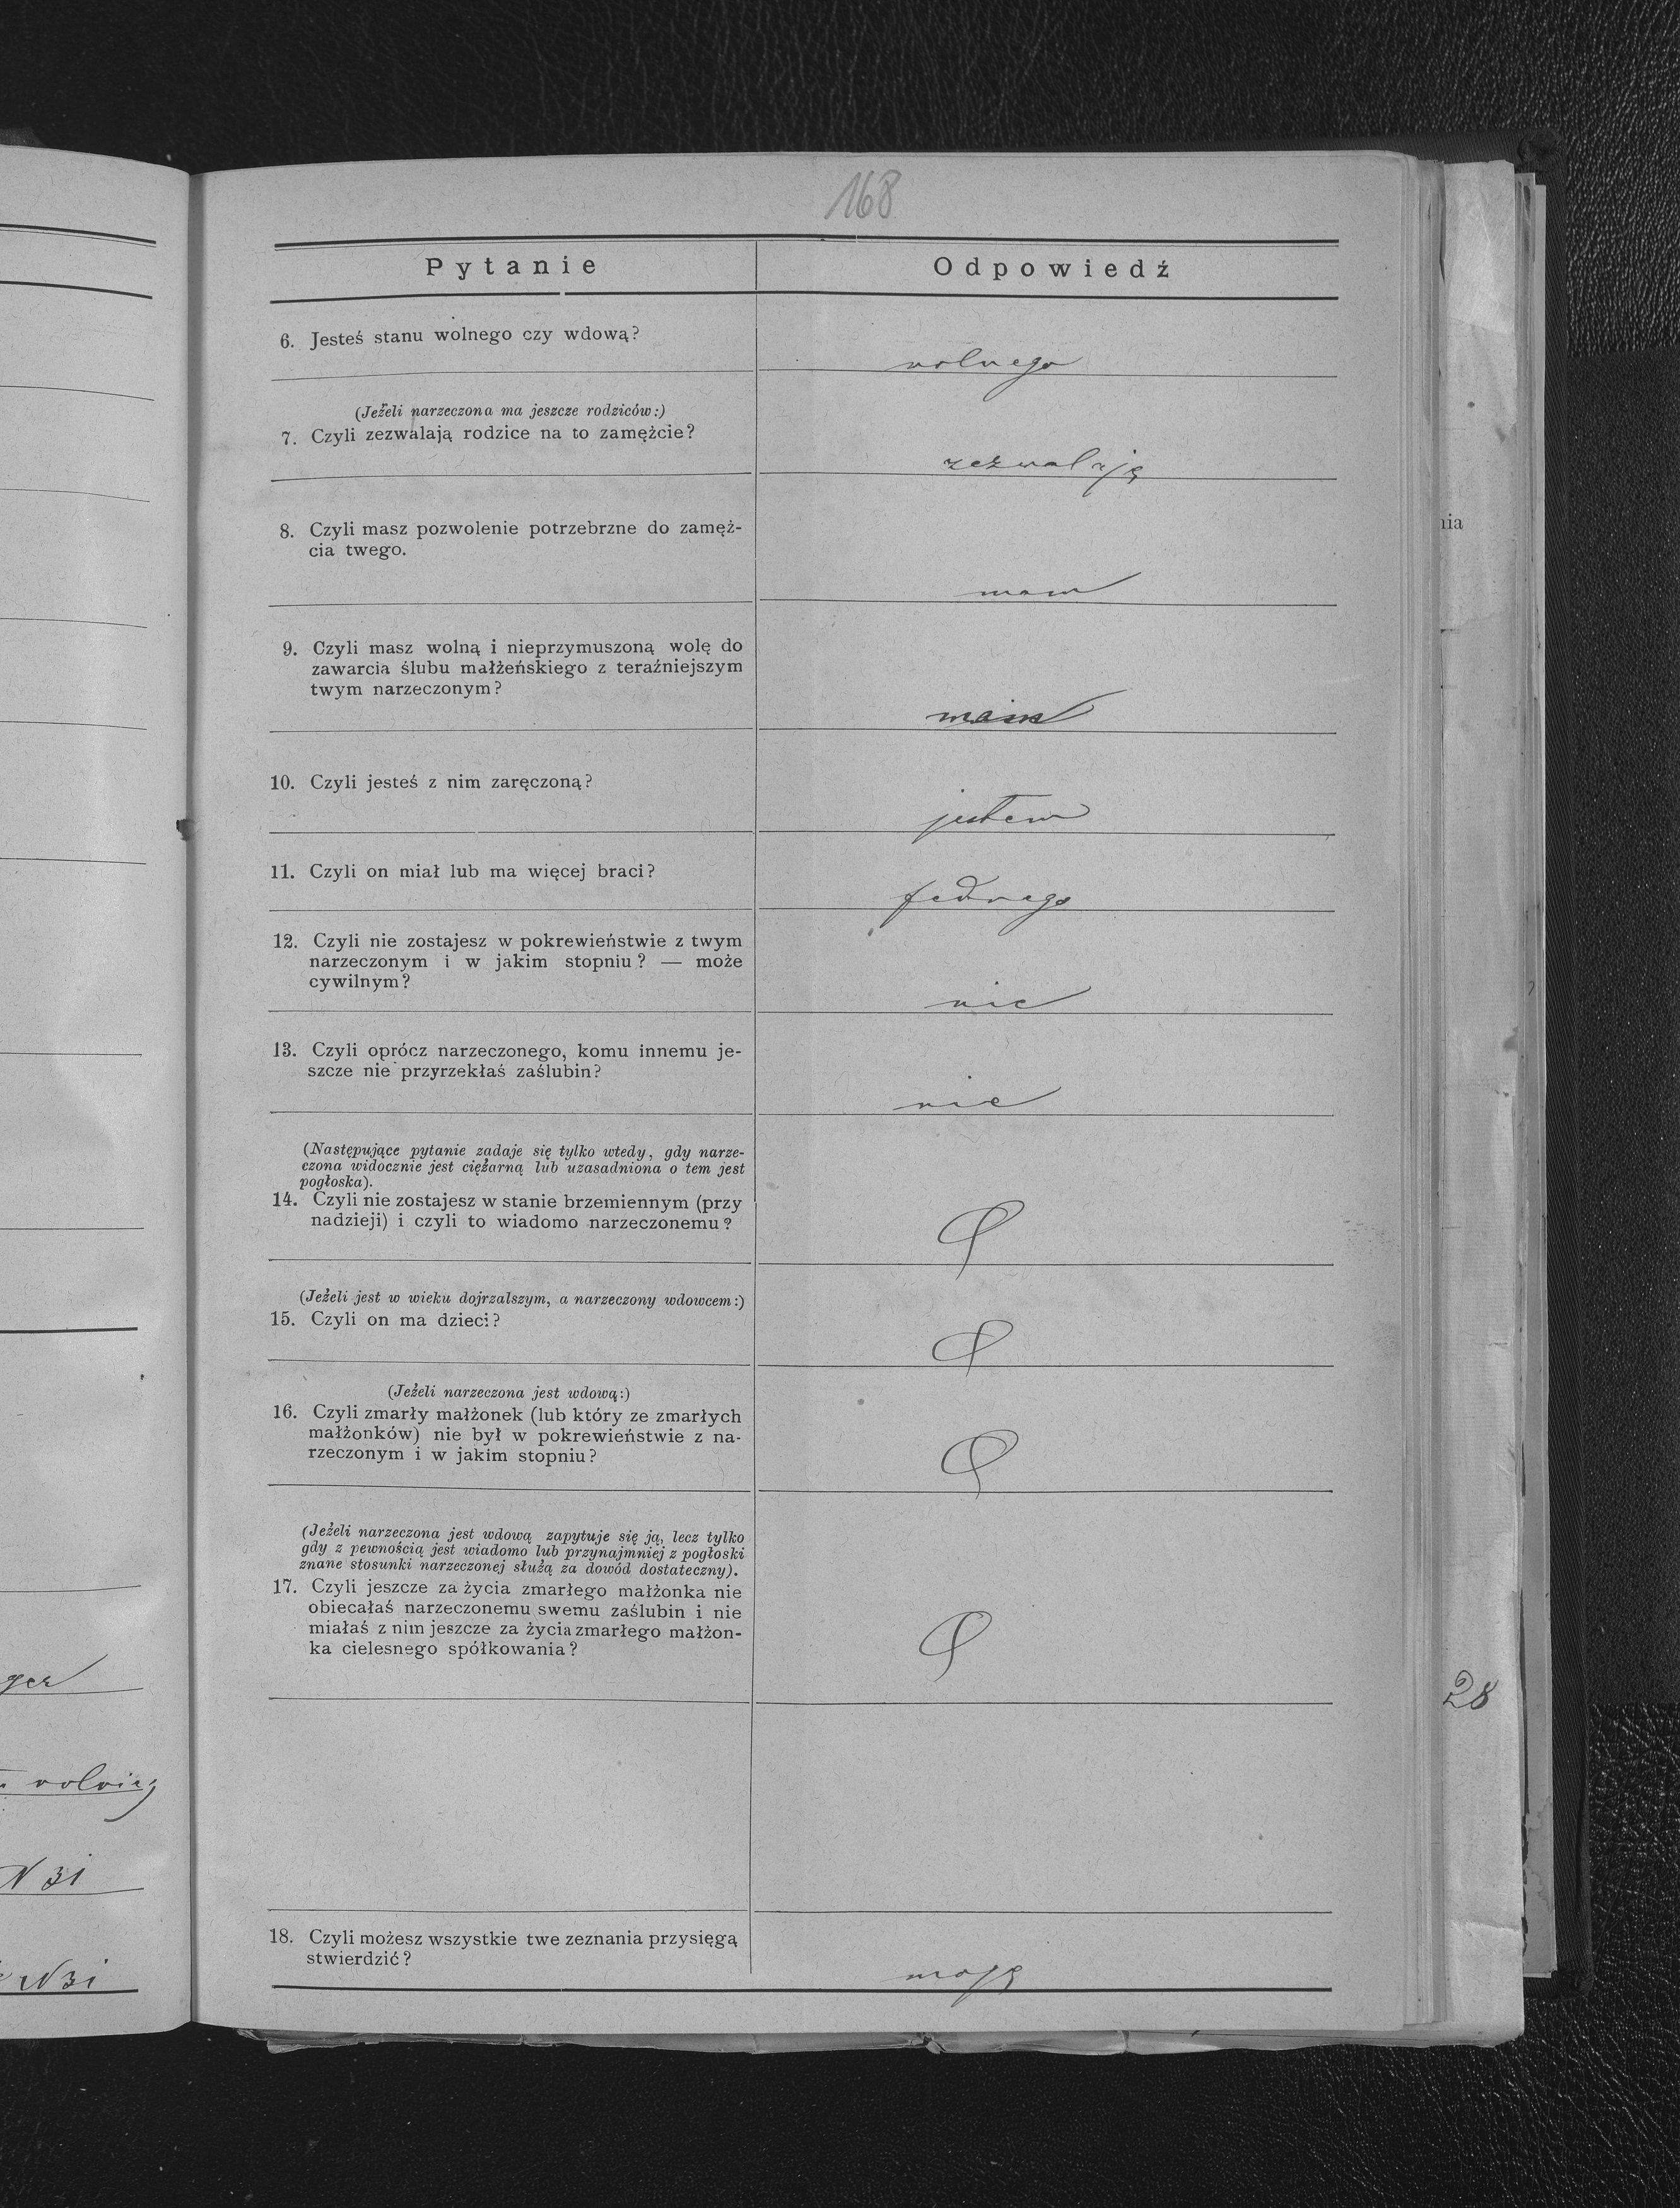 168
Pytanie
Odpowiedź
6. Jesteś stanu wolnego czy wdową?
wolnego
(Jeżeli narzeczona ma jeszcze rodziców:)
7. Czyli zezwalają rodzice na to zamężcie?
zezwalają
8. Czyli masz pozwolenie potrzebrzne do zamęż-
cia twego.
mam
9. Czyli masz wolną i nieprzymuszoną wolę do
zawarcia ślubu małżeńskiego z teraźniejszym
twym narzeczonym?
mam
10. Czyli jesteś z nim zaręczoną?
jestem
11. Czyli on miał lub ma więcej braci?
jednego
12. Czyli nie zostajesz w pokrewieństwie z twym
narzeczonym i w jakim stopniu? — może
cywilnym?
nie
13. Czyli oprócz narzeczonego, komu innemu je-
szcze nie przyrzekłaś zaślubin?
nie
(Następujące pytanie zadaje się tylko wtedy, gdy narze-
czona widocznie jest ciężarną lub uzasadniona o tem jest
pogłoska).
14. Czyli nie zostajesz w stanie brzemiennym (przy
nadzieji) i czyli to wiadomo narzeczonemu?
(Jeżeli jest w wieku dojrzalszym, a narzeczony wdowcem:)
15. Czyli on ma dzieci?
(Jeżeli narzeczona jest wdową:)
16. Czyli zmarły małżonek (lub który ze zmarłych
małżonków) nie był w pokrewieństwie z na-
rzeczonym i w jakim stopniu?
(Jeżeli narzeczona jest wdową zapytuje się ją, lecz tylko
gdy z pewnością jest wiadomo lub przynajmniej z pogłoski
znane stosunki narzeczonej służą za dowód dostateczny).
17. Czyli jeszcze za życia zmarłego małżonka nie
obiecałaś narzeczonemu swemu zaślubin i nie
miałaś z nim jeszcze za życia zmarłego małżon-
ka cielesnego spółkowania?
18. Czyli możesz wszystkie twe zeznania przysięgą
stwierdzić?
mogę
ger
N 31
N 31
nia
28